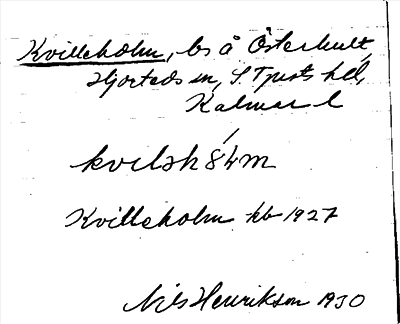 Kvilleholm, ls å Österhult,
Hjorteds sn, S. Tjusts hd,
Kalmar l
Kvilleholm kb 1927
Nils Henrikson 1930